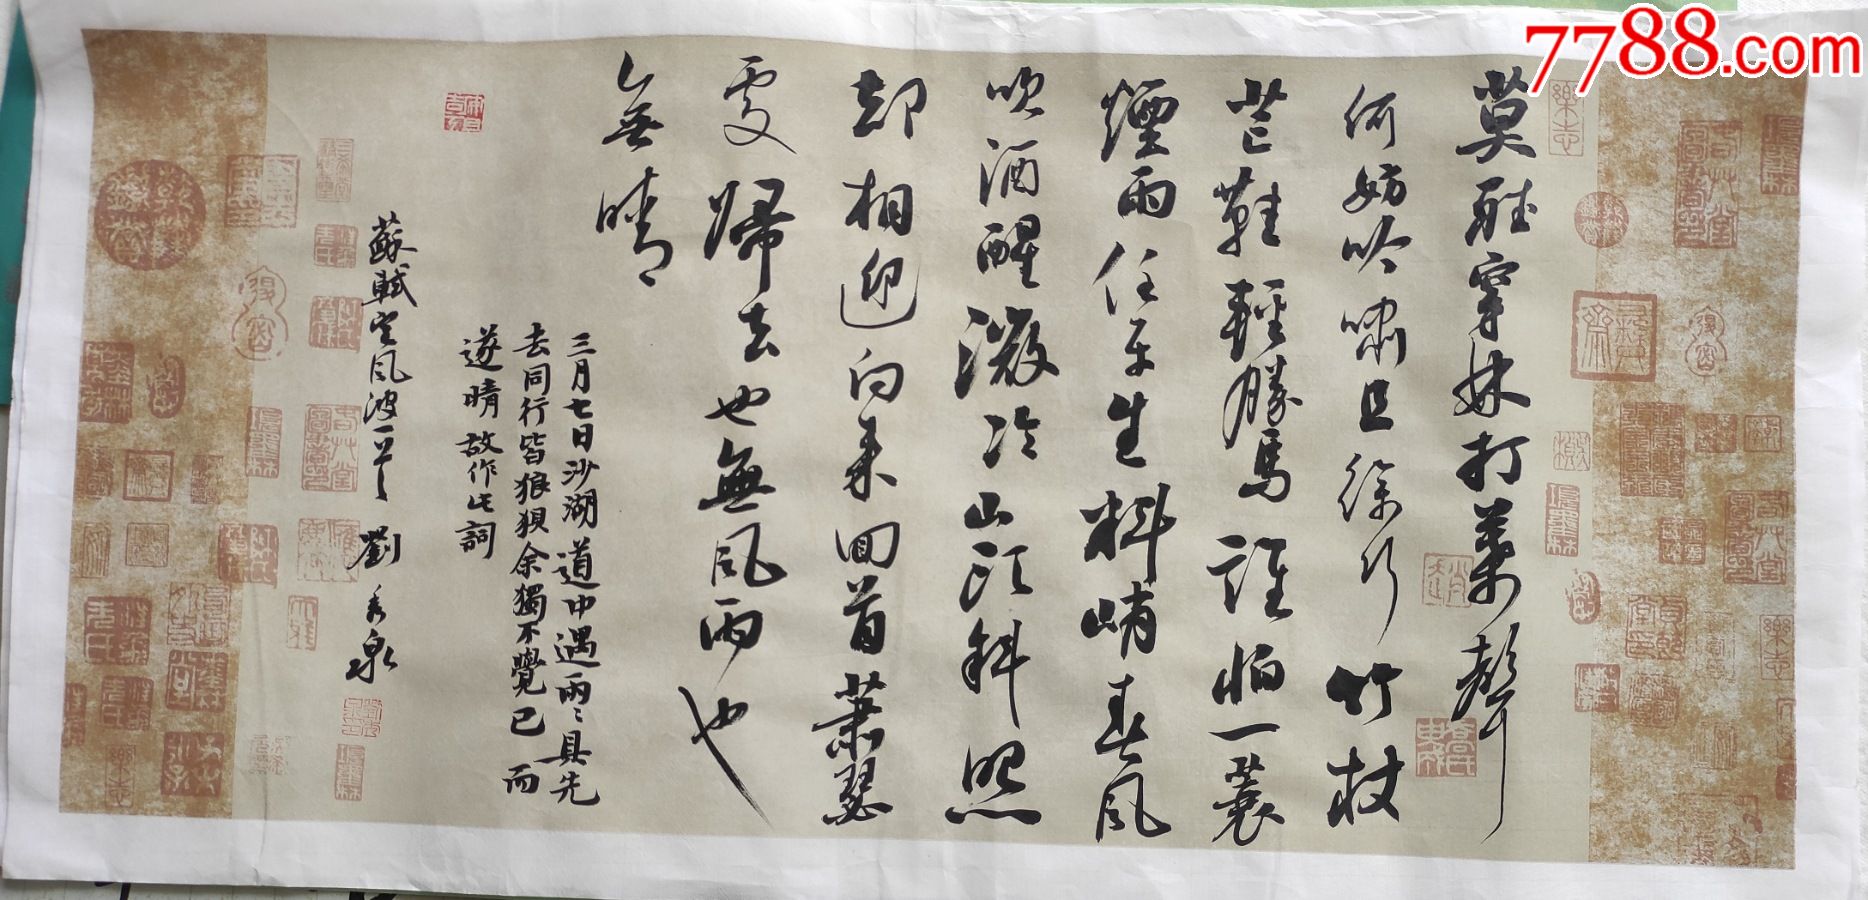 7788.com
莫聽穿林打葉聲
何妨吟嘯且徐行竹杖
芒鞋輕勝馬誰怕一蓑
煙雨任平生料峭春風
吹酒醒微冷山頭斜照
却相迎向來回首蕭瑟
處歸去也無風雨也
無晴
三月七日沙湖道中遇雨〻具先
去同行皆狼狽余獨不覺已而
遂晴故作此詞
蘇軾定風波一首 劉 泉